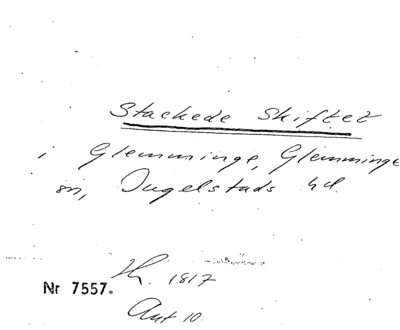 Stackede Skiftet
i Glemminge, Glemminge
sn, Ingelstads hd.
Nr 7557.
1817
Akt 10.